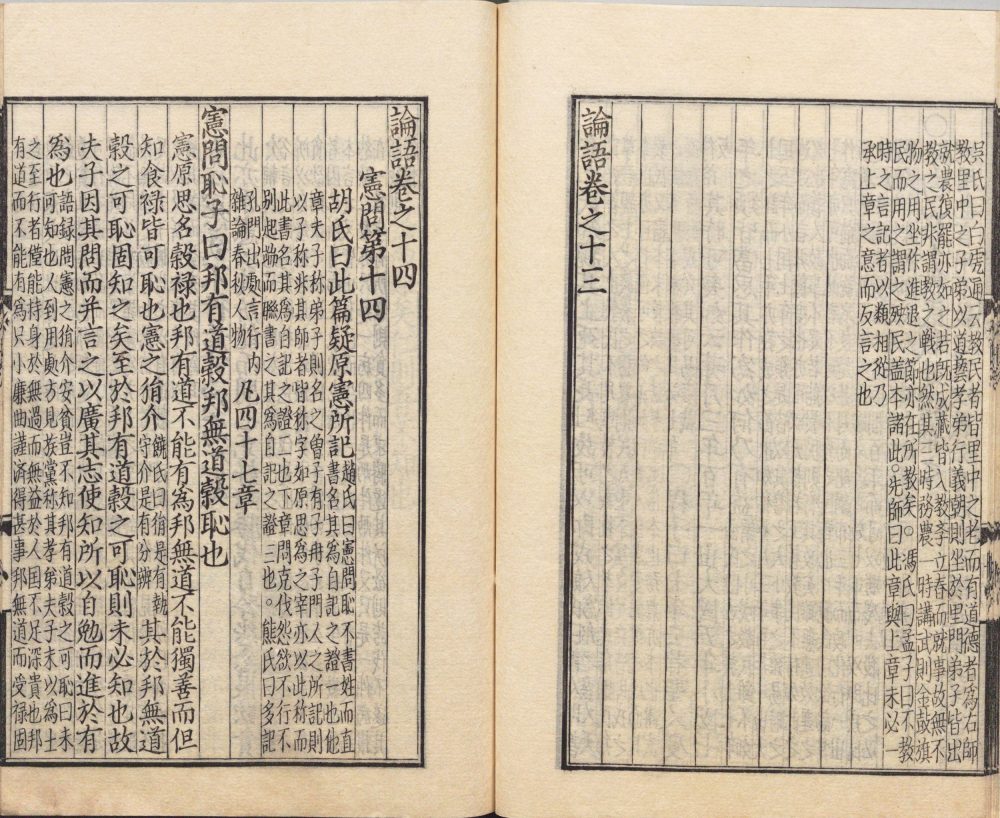 吳氏曰白虎通云教民者皆里中之老而有道德者為右師
教里中之子弟以道藝孝弟行義朝則坐於里門弟子皆出
就農復罷亦如之若既成藏皆入教李立春而就事故無不
教之民非謂教之戰也然其三時務農一時講武則金鼓旗
物之用坐作進退之節亦在所教矣。馮氏曰孟子曰不教
民而用之謂之殃民蓋本諸此。先師曰此章與上章未必一
時之言記者以類相從乃
承上章之意而反言之也
論語卷之十三
論語卷之十四
憲問第十四
胡氏曰此篇疑原憲所記趙氏曰憲問恥不書姓而直
書名其為自記之證一也他
章夫子稱弟子則名之曾子有子冉子門人之所記則
以子稱非其師者皆稱字如原思為之宰亦以此稱而
此書名其為自記之證二也下章問克伐怨欲不行不
別起端而聯書之其為自記之證三也。熊氏曰多記
孔門出處言行内
雜論春秋人物 凡四十七章
憲問恥子曰邦有道穀邦無道穀恥也
憲原思名穀禄也邦有道不能有為邦無道不能獨善而但
知食禄皆可恥也憲之狷介饒氏曰狷是有執
守介是有分辨其於邦無道
穀之可恥固知之矣至於邦有道穀之可恥則未必知也故
夫子因其問而并言之以廣其志使知所以自勉而進於有
為也語録問憲之狷介安貧豈不知邦有道穀之可恥曰未
可知也人到用處方見族黨稱其孝弟夫子未以為士
之至行者僅能持身於無過而無益於人国不足深貴也邦
有道而不能有為只小廉曲謹済得甚事邦無道而受禄固